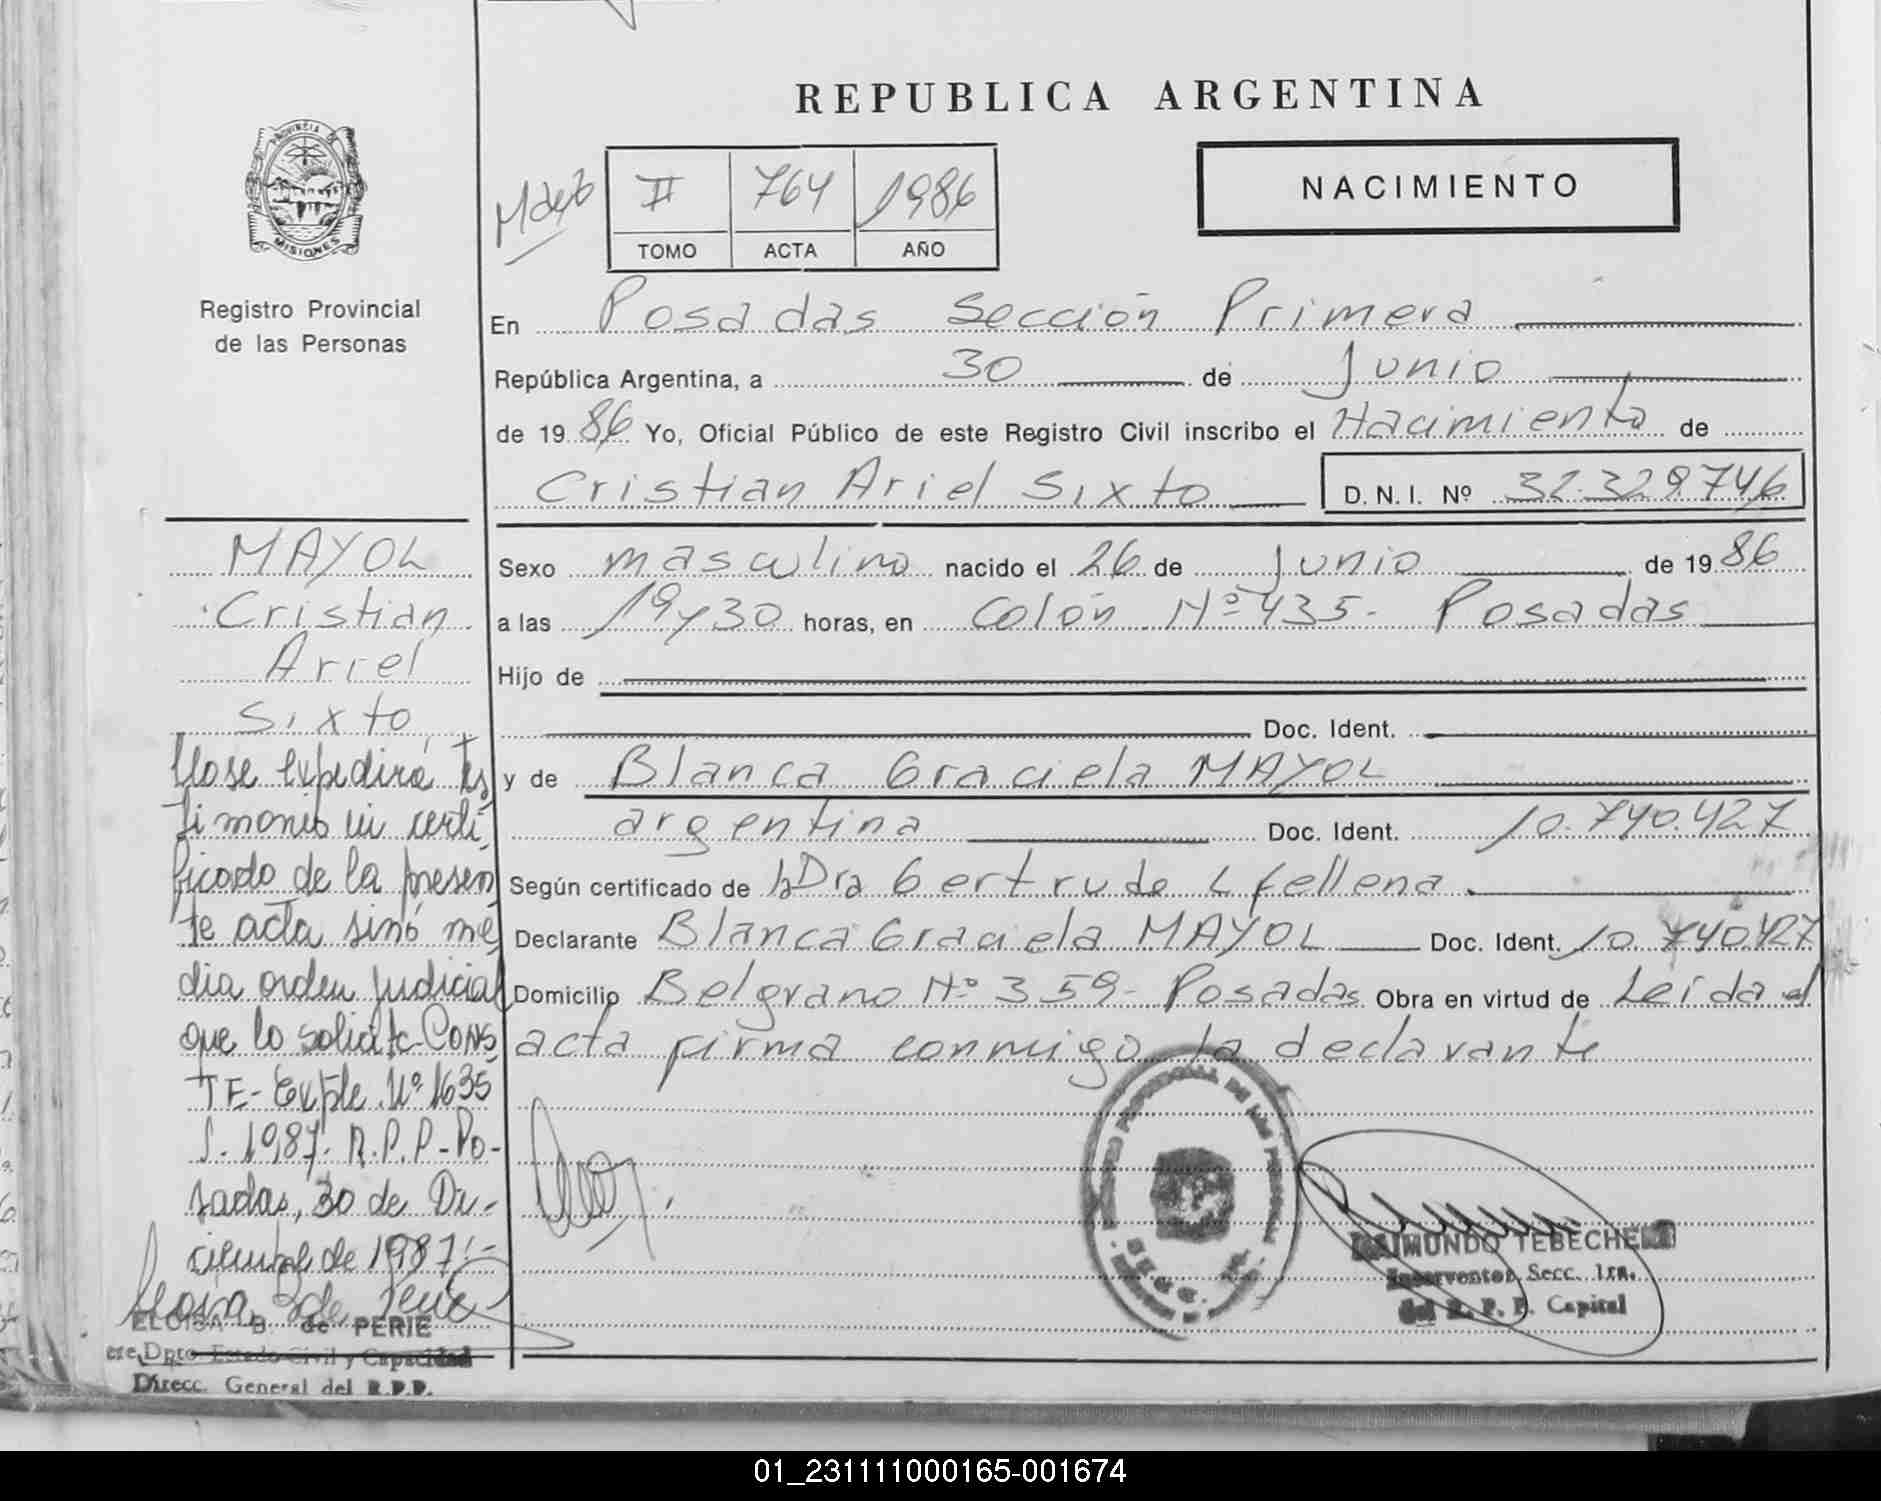 REPUBLICA ARGENTINA
NACIMIENTO
II 764 1986
TOMO ACTA AÑO
PROVINCIA DE
MISIONES
Registro Provincial
de las Personas
En Posadas Sección Primera
República Argentina, a 30 de Junio
de 19 86 Yo, Oficial Público de este Registro Civil inscribo el Nacimiento de
Cristian Ariel Sixto D.N.I. Nº 32.329746
Sexo masculino nacido el 26 de Junio de 19 86
a las 19y30 horas, en Colón Nº 435- Posadas
Hijo de
Doc. Ident.
y de Blanca Graciela MAYOL
argentina Doc. Ident. 10.740.427
Según certificado de la Dra Gertrude
Declarante Blanca Graciela MAYOL Doc. Ident. 10.740.427
Domicilio Belgrano Nº 359- Posadas Obra en virtud de Leida el
acta firma conmigo la declarante
RAIMUNDO TEBECHERI
Interventor Secc. 1ra.
del R. P. P. Capital
MAYOL
Cristian
Ariel
Sixto
No se expedirá tes
timonio ni certi
ficado de la presen
te acta sinó me
dia orden judicial
que lo solicite-CONS
TE- Expte. Nº 1635
S. 1987- R.P.P-Po-
sadas, 30 de Di-
ciembre de 1987.-
ELOISA B. de PERIE
Dpto Estado Civil y Capacidad
Direcc. General del R.P.P.
01_231111000165-001674